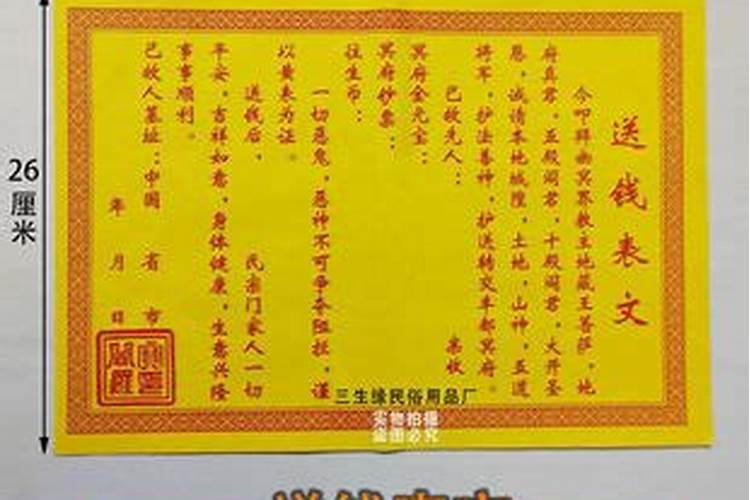 送钱表文
今叩拜幽冥界教主地藏王菩萨，地
府真君，五殿阎君，十殿阎君，大开圣
恩，诚请本地城隍，土地，山神，五道
将军，护法善神，护送转交丰都冥府。
已故先人：
亲收
冥府金元宝：
冥府钞票：
往生币：
一切恶鬼，恶神不可争夺阻拦，谨
以黄表为证。
送钱后，
民宗门家人一切
平安，吉祥如意，身体健康，生意兴隆
事事顺利。
已故人墓址：中国
省
市
年
月
日
26
厘米
三生缘民俗用品厂
实物拍摄
盗图必究